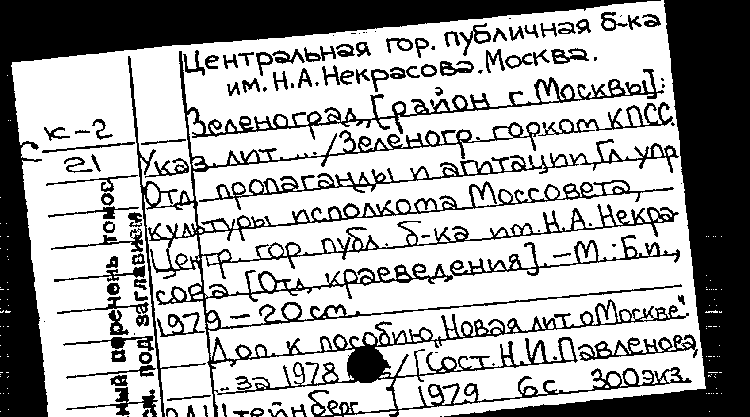 Центральная гор. публичная б-ка
им. Н.А.Некрасова.Москва.
К-2
21
Зеленоград, [район г.Москвы]:
Указ. лит. .../Зеленогр. горком КПСС.
Отд. пропаганды и агитации, Гл. упр
культуры исполкома Моссовета, —
Центр. гор. публ. б-ка им.Н.А.Некра-
сова. [Отд. краеведения]. — М.: Б.и.,
1979 — 20 см.
Доп. к пособию „Новая лит. о Москве".
.. за 1978 / [Сост. Н.И.Павленова,
Штейнберг ] 1979 6 с. 300 экз.
ный перечень томов
см. под заглавием